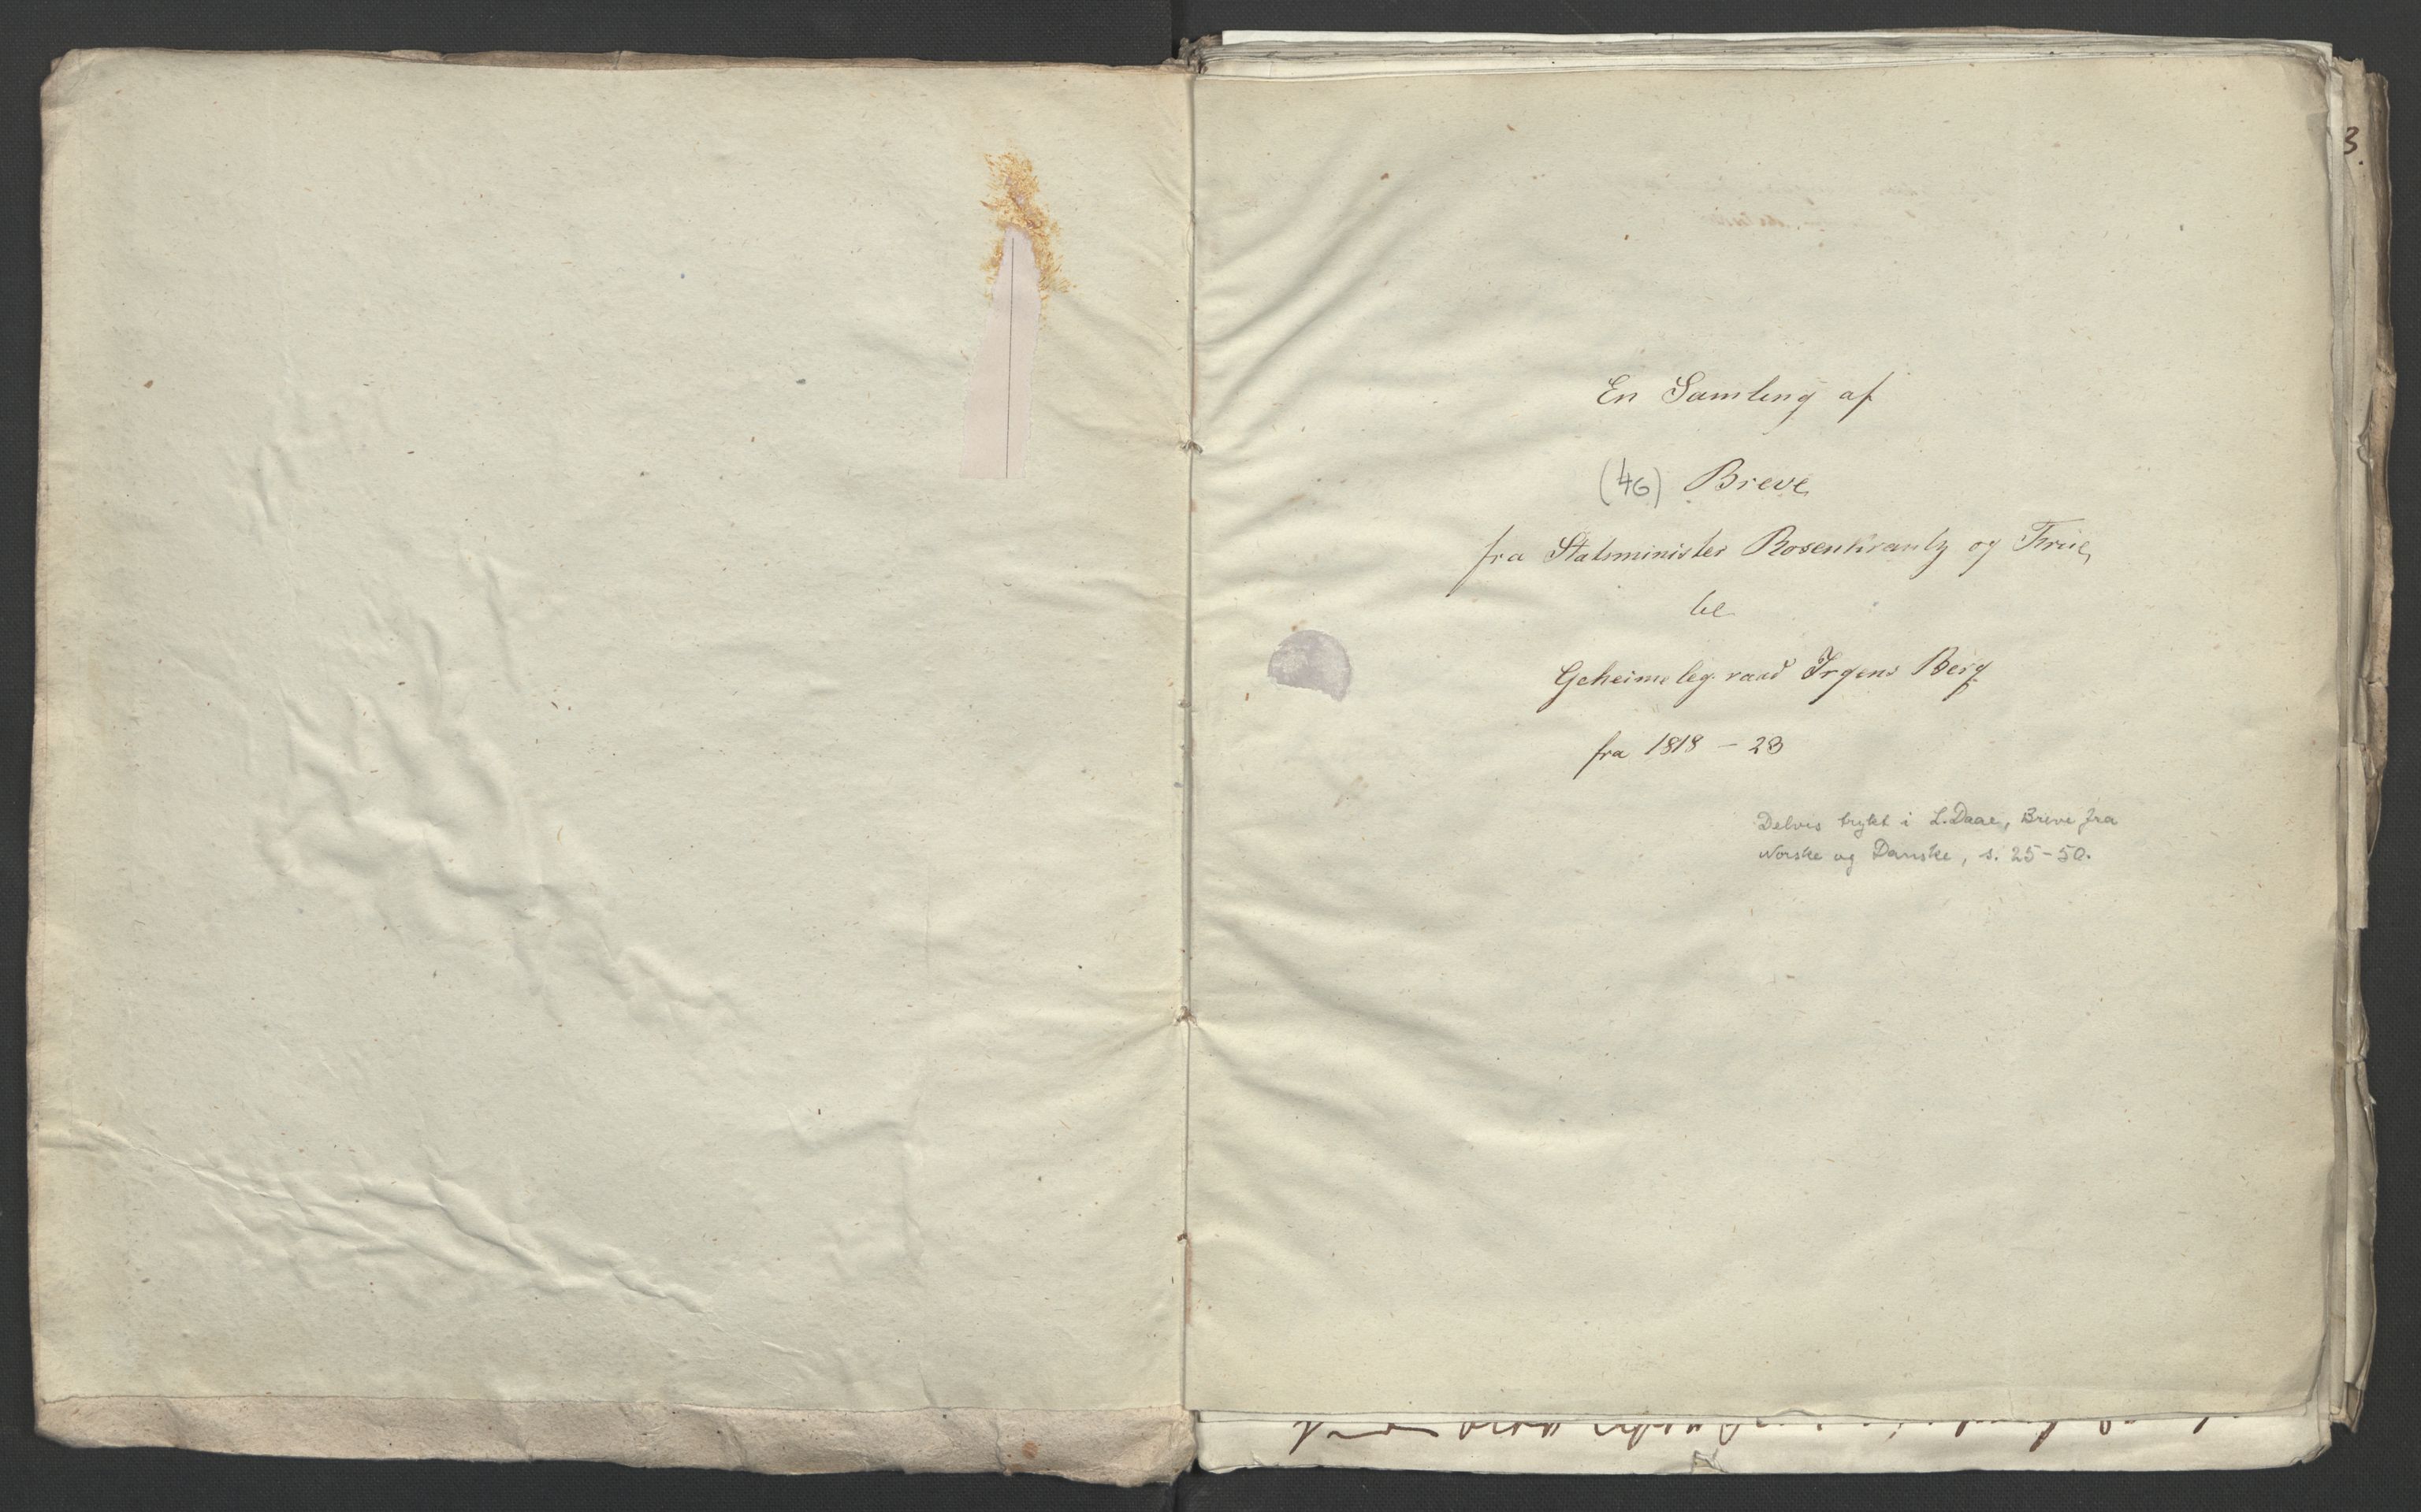 3.
En Samling af
(46) Breve
fra Statsminister Rosenkrantz og Frue
til
Geheimeleg. raad Irgens Berg
fra 1818 - 23
Delvis trykt i L. Daae, Breve fra
Norske og Danske, s. 25-50.